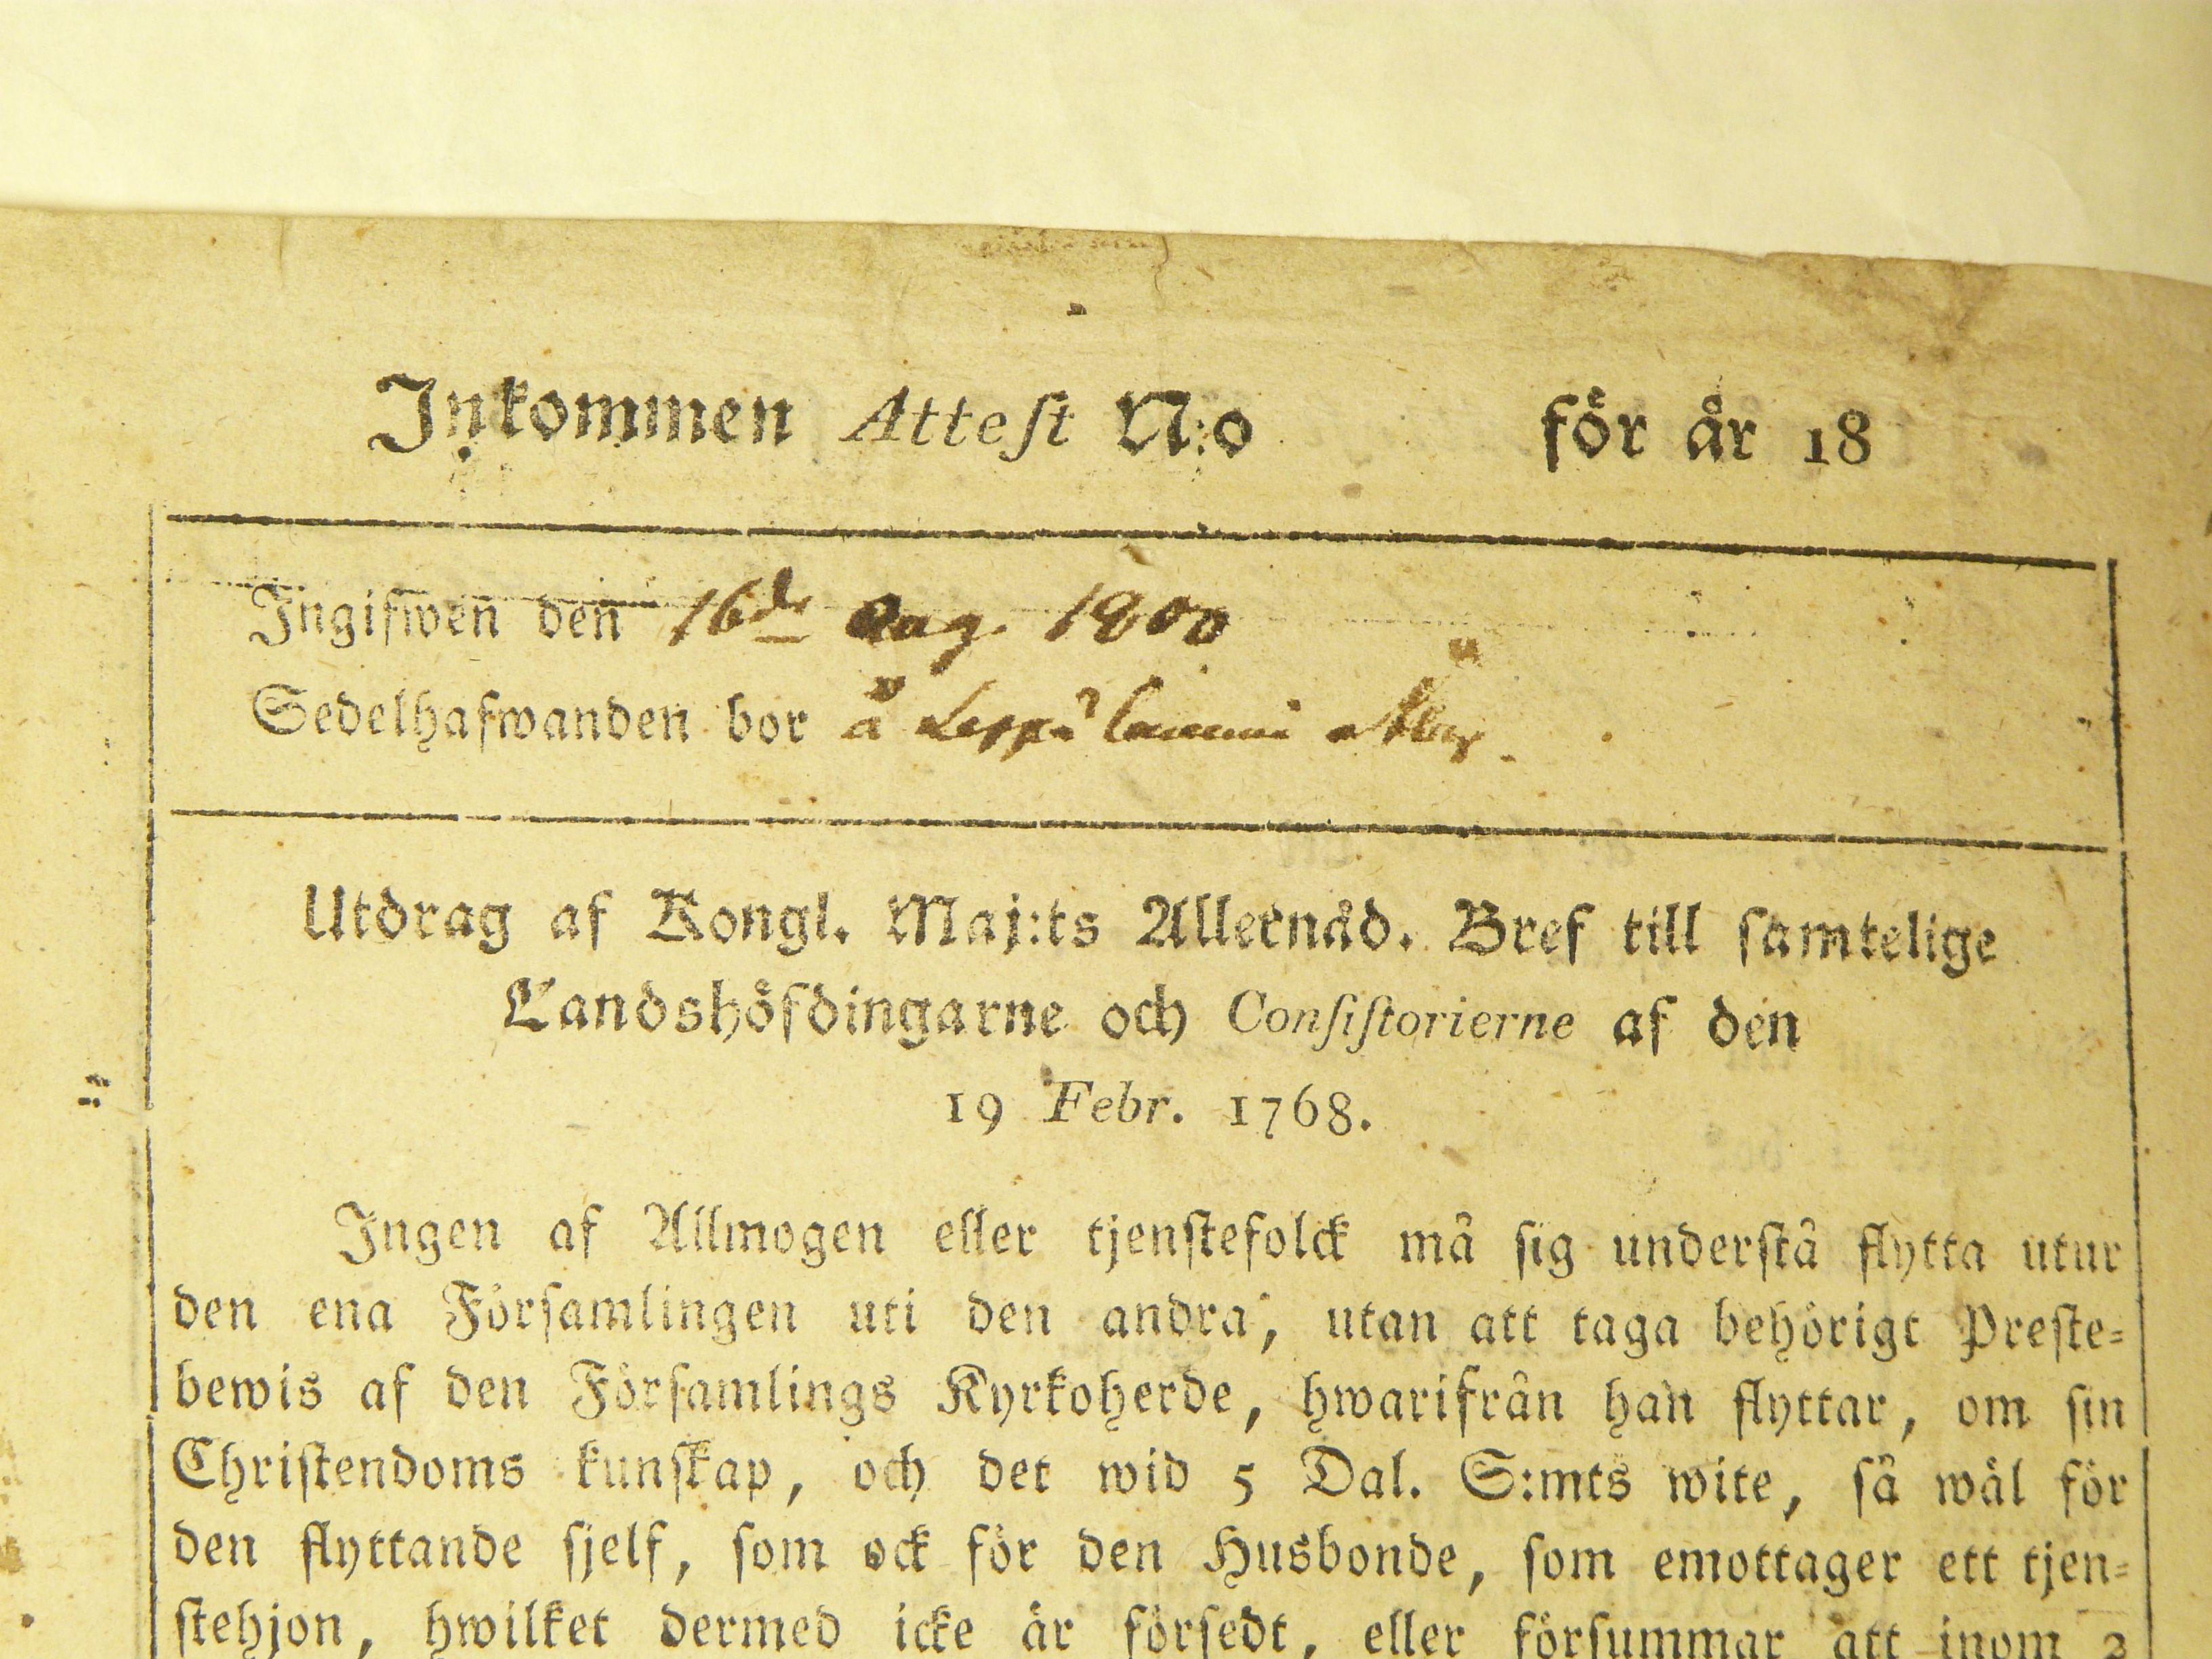 Inkommen Attest N:o för år 18
Ingifwen den 16de Aug. 1800
Sedelhafwanden bor å
Utdrag af Kongl. Maj:ts Allernåd. Bref till samtelige
Landshöfdingarne och Consistorierne af den
19 Febr. 1768.
Ingen af Allmogen eller tjenstefolck må sig understå flytta utur
den ena Församlingen uti den andra, utan att taga behörigt Preste-
bewis af den Församlings Kyrkoherde, hwarifrån han flyttar, om sin
Christendoms kunskap, och det wid 5 Dal. S:mts wite, så wäl för
den flyttande sjelf, som ock för den Husbonde, som emottager ett tjen-
stehjon, hwilket dermed icke är försedt, eller försummar att inom